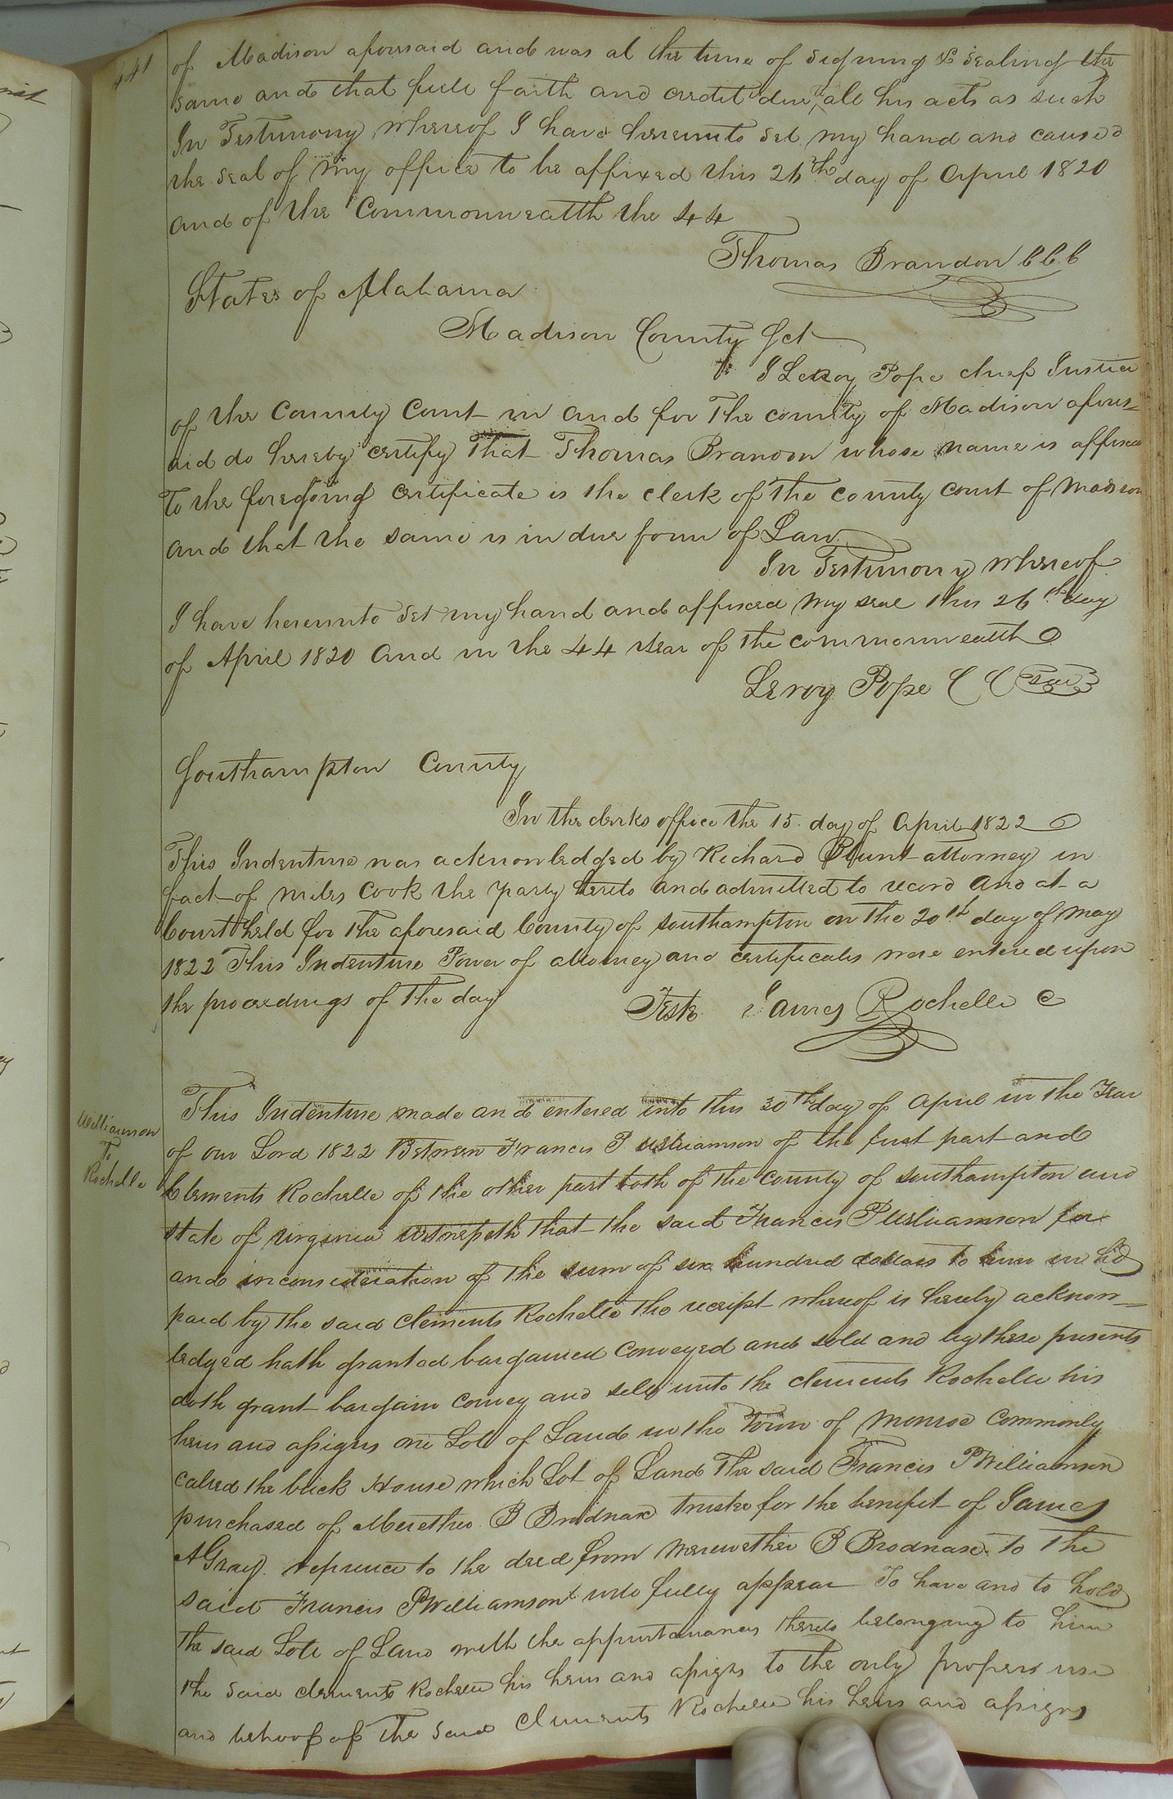 441
of Madison aforesaid and was at the time of signing & sealing the
same and that full faith and credit due all his acts as such
In Testimony whereof I have hereunto set my hand and caused
the seal of my office to be affixed this 26th day of April 1820
and of the Commonwealth the 44
Thomas Brandon C C C
States of Alabama
Madison County Sct
I Leroy Pope chief Justice
of the County Court in and for The county of Madison afores=
aid do hereby certify that Thomas Brandon whose name is affixed
To the foregoing certificate is the clerk of the county court of Madison
and that the same is in due form of Law
In Testimony whereof
I have hereunto set my hand and affixed my seal this 26th day
of April 1820 and in the 44 year of the commonwealth
Leroy Pope C C Seal
Southampton County
In the clerks office the 15 day of April 1822
This Indenture was acknowledged by Richard Blunt attorney in
fact of Miles Cook the party hereto and admitted to record and at a
Court held for the aforesaid County of Southampton on the 20th day of May
1822 This Indenture Power of attorney and certificates were entered upon
the proceedings of the day
Teste James Rochelle C
Williamson
To
Rochelle
This Indenture made and entered into this 30th day of April in the Year
of our Lord 1822 Between Francis P Williamson of the first part and
Clements Rochelle of the other part both of the county of Southampton and
state of Virginia Witnesseth that the said Francis P Williamson for
and in consideration of the sum of six hundred dollars to him in hd
paid by the said Clements Rochelle the receipt whereof is hereby acknow=
ledged hath granted bargained conveyed and sold and by these presents
doth grant bargain convey and sell unto the clements Rochelle his
heirs and assigns one Lott of Land in the Town of Monroe commonly
called the brick House which Lot of Land The said Francis P Williamson
purchased of Merethew B Brodnax trustee for the benefit of James
A Gray reference to the deed from Merewether B Brodnax to the
said Francis P Williamson will fully appear To have and to hold
The said Lott of Land with the appurtenances thereto belonging to him
the said clements Rochelle his heirs and assigns to the only proper use
and behoof of the said Clements Rochelle his heirs and assigns